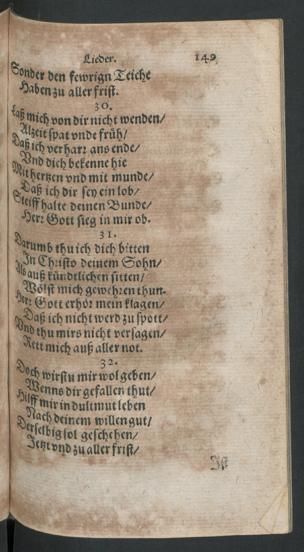 Lieder. 149
Sonder den fewrign Teiche
Haben zu aller frist.
30.
Laß mich von dir nicht wenden/
Alzeit spat vnde früh/
Daß ich verharr ans ende/
Vnd dich bekenne hie
Mit hertzen vnd mit munde/
Daß ich dir sey ein lob/
Steiff halte deinen Bunde/
Herr Gott sieg in mir ob.
31.
Darumb thu ich dich bitten
In Christo deinem Sohn/
Als auß kündtlichen sitten/
Wölst mich gewehren thun.
Herr Gott erhör mein klagen/
Daß ich nicht werd zu spott/
Vnd thu mirs nicht versagen/
Rett mich auß aller not.
32.
Doch wirstu mir wol geben/
Wenns dir gefallen thut/
Hilff mir in dultmut leben
Nach deinem willen gut/
Derselbig sol geschehen/
Jetzt vnd zu aller frist/
Ist